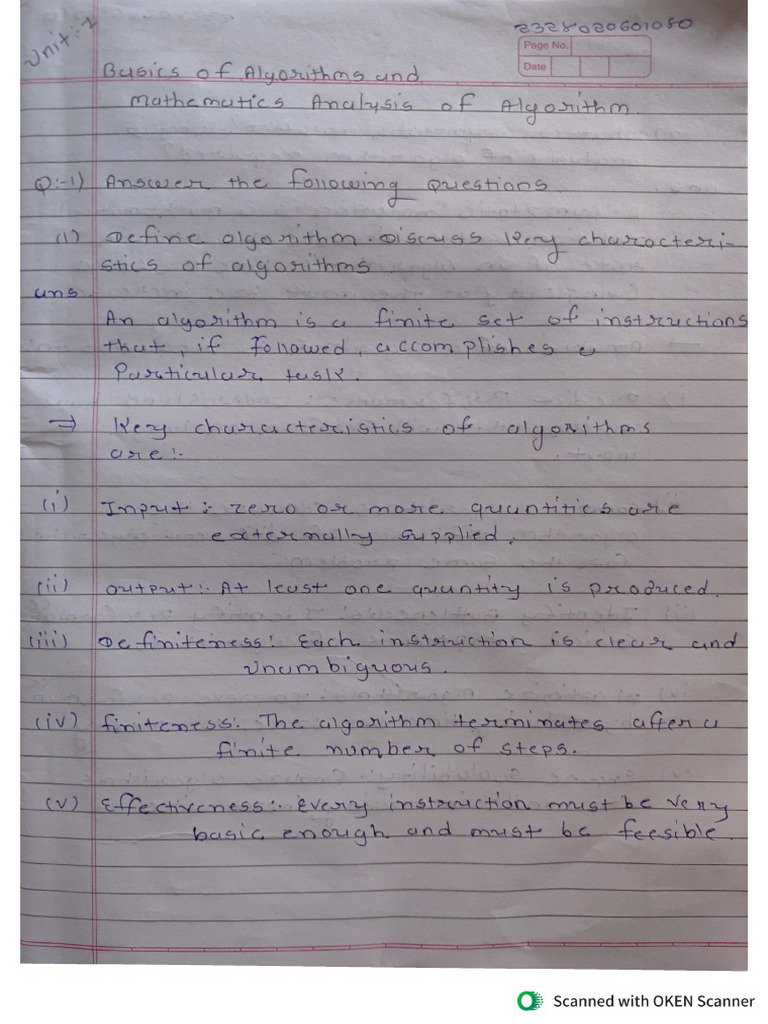 Unit:-1
2328020601080
Page No.
Date
Basics of Algorithms and
Mathematics Analysis of Algorithm
Q:-1) Answer the following questions.
(1) Define algorithm. Discuss key characteri-
stics of algorithms.
ans.
An algorithm is a finite set of instructions
that, if followed, accomplishes a
Particular task.
⇒ Key characteristics of algorithms
are:-
(i) Input: zero or more quantities are
externally supplied.
(ii) output:- At least one quantity is produced.
(iii) Definiteness: Each instruction is clear and
Unambiguous.
(iv) finiteness:- The algorithm terminates after a
finite number of steps.
(v) Effectiveness:- Every instruction must be very
basic enough and must be feesible.
Scanned with OKEN Scanner